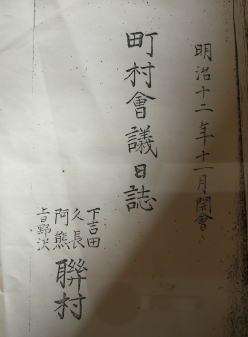 明治十二年十一月開會
町村會議日誌
下吉田
久長
阿熊
上日野沢
聯村